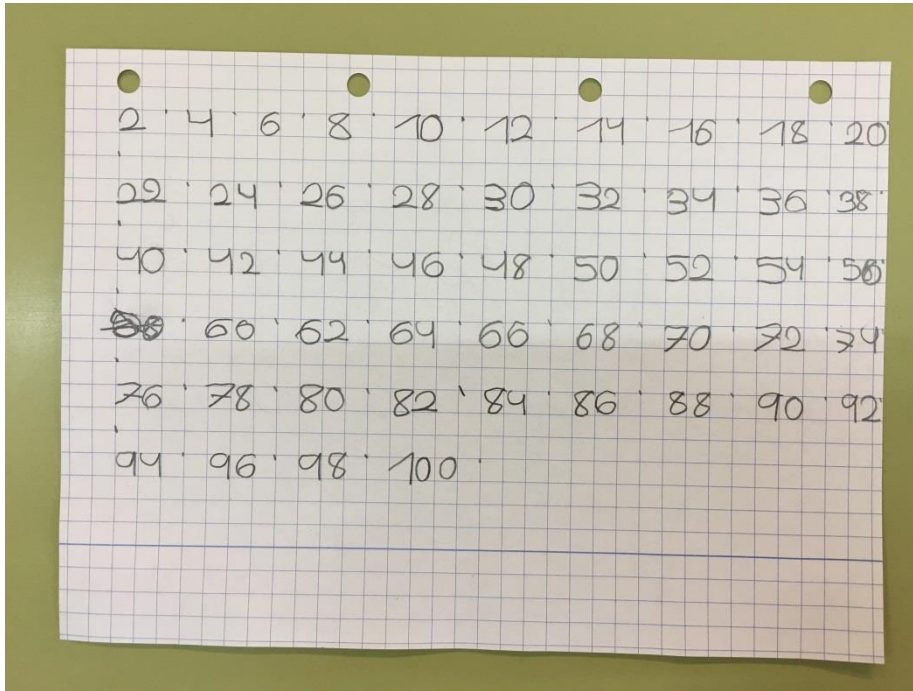 2 · 4 · 6 · 8 · 10 · 12 · 14 · 16 · 18 · 20
22 · 24 · 26 · 28 · 30 · 32 · 34 · 36 · 38
40 · 42 · 44 · 46 · 48 · 50 · 52 · 54 · 56
60 · 62 · 64 · 66 · 68 · 70 · 72 · 74
76 · 78 · 80 · 82 · 84 · 86 · 88 · 90 · 92
94 · 96 · 98 · 100 ·